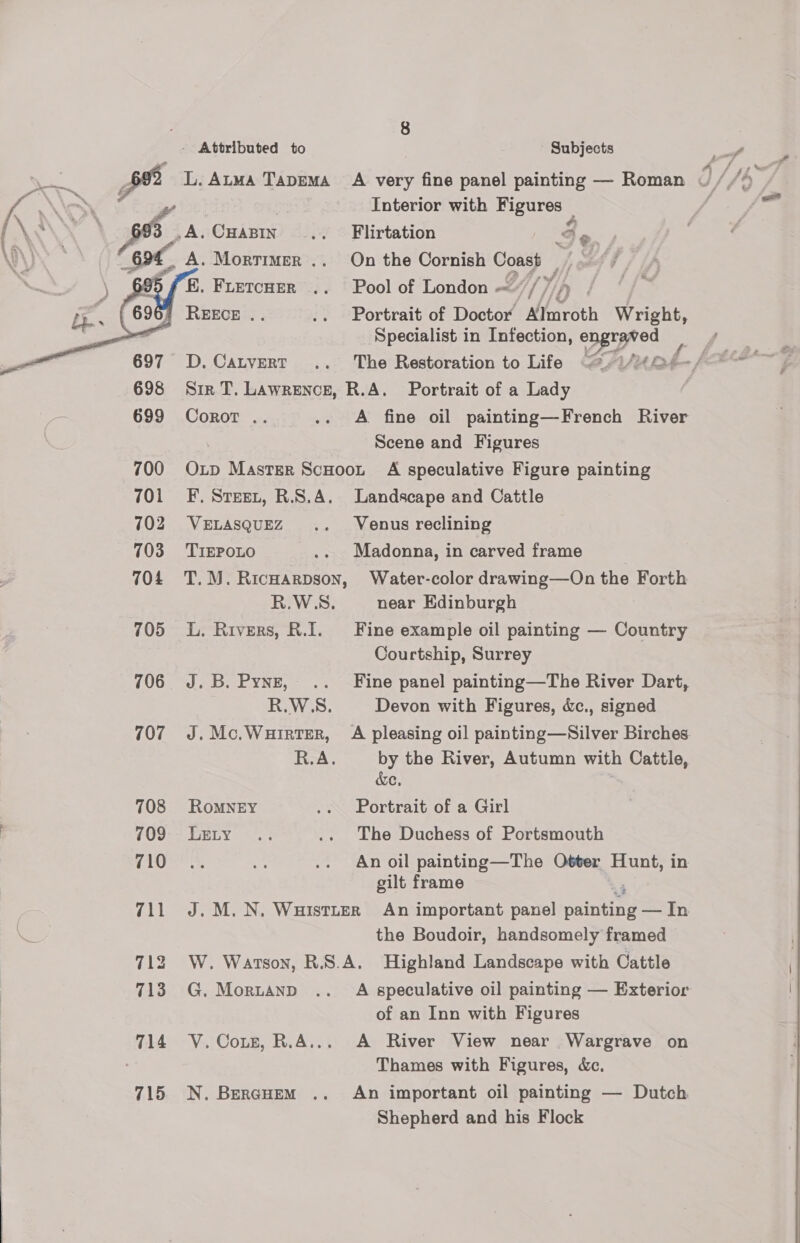 8
Attributed to Subjects
692 L. ALMA TADEMA A very fine panel painting — Roman
Interior with Figures
693 A. CHABIN .. Flirtation
694 A. MORTIMER .. On the Cornish Coast
695 E. FLETCHER .. Pool of London
696 REECE .. .. Portrait of Doctor Almroth Wright,
Specialist in Infection, engraved
697 D. CALVERT .. The Restoration to Life
698 SIR T. LAWRENCE, R.A. Portrait of a Lady
699 COROT .. .. A fine oil painting—French River
Scene and Figures
700 OLD MASTER SCHOOL A speculative Figure painting
701 F. STEEL, R.S.A. Landscape and Cattle
702 VELASQUEZ .. Venus reclining
703 TIEPOLO .. Madonna, in carved frame
704 T. M. RICHARDSON, Water-color drawing—On the Forth
R.W.S. near Edinburgh
705 L. RIVERS, R.I. Fine example oil painting — Country
Courtship, Surrey
706 J. B. PYNE, .. Fine panel painting—The River Dart,
R.W.S. Devon with Figures, &c., signed
707 J. Mc.WHIRTER, A pleasing oil painting—Silver Birches
R.A. by the River, Autumn with Cattle,
&c.
708 ROMNEY .. Portrait of a Girl
709 LELY .. .. The Duchess of Portsmouth
710 .. .. .. An oil painting—The Otter Hunt, in
gilt frame
711 J. M. N. WHISTLER An important panel painting — In
the Boudoir, handsomely framed
712 W. WATSON, R.S.A. Highland Landscape with Cattle
713 G. MORLAND .. A speculative oil painting — Exterior
of an Inn with Figures
714 V. COLE, R.A... A River View near Wargrave on
Thames with Figures, &c.
715 N. BERGHEM .. An important oil painting — Dutch
Shepherd and his Flock